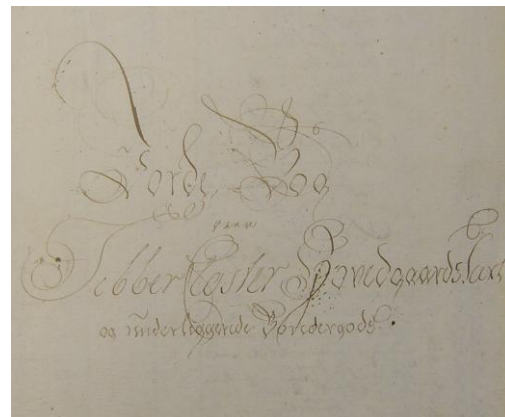 Jorde Bog
over
Sebber Closter Hovedgaards Taxt
og underliggende Bøndergods.